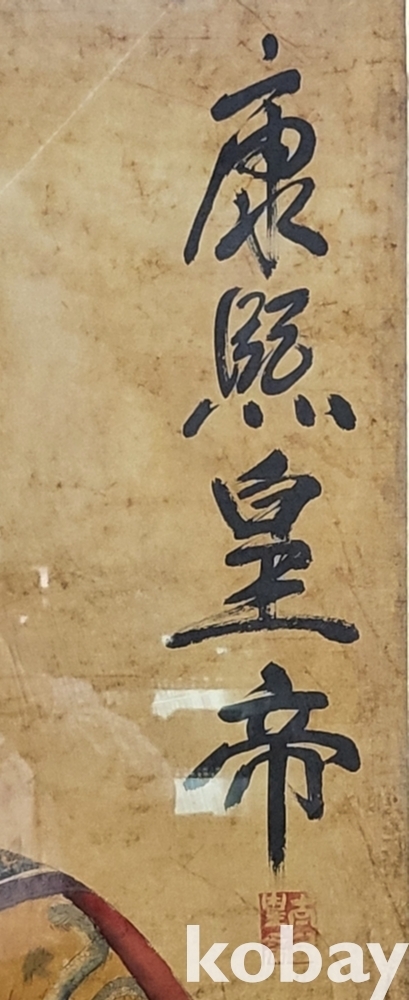 康熙皇帝
kobay